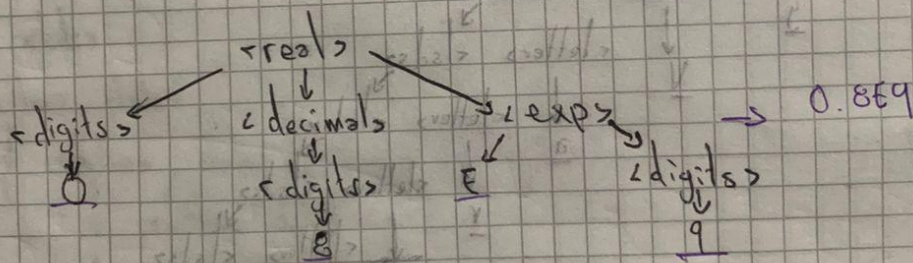 <real>
<digits> <decimal> <exp> → 0.8E9
0 <digits> E <digits>
8 9